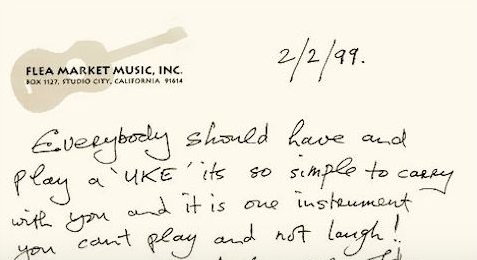 2/2/99.
FLEA MARKET MUSIC, INC.
BOX 1127, STUDIO CITY, CALIFORNIA 91614
Everybody should have and
play a 'UKE' its so simple to carry
with you and it is one instrument
you cant play and not laugh!